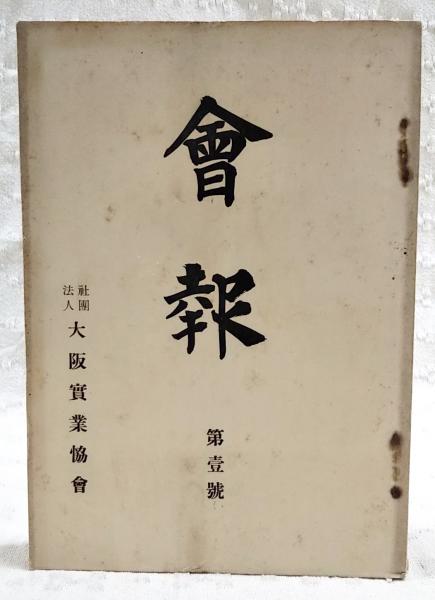 會報
第壹號
社團法人 大阪實業協會